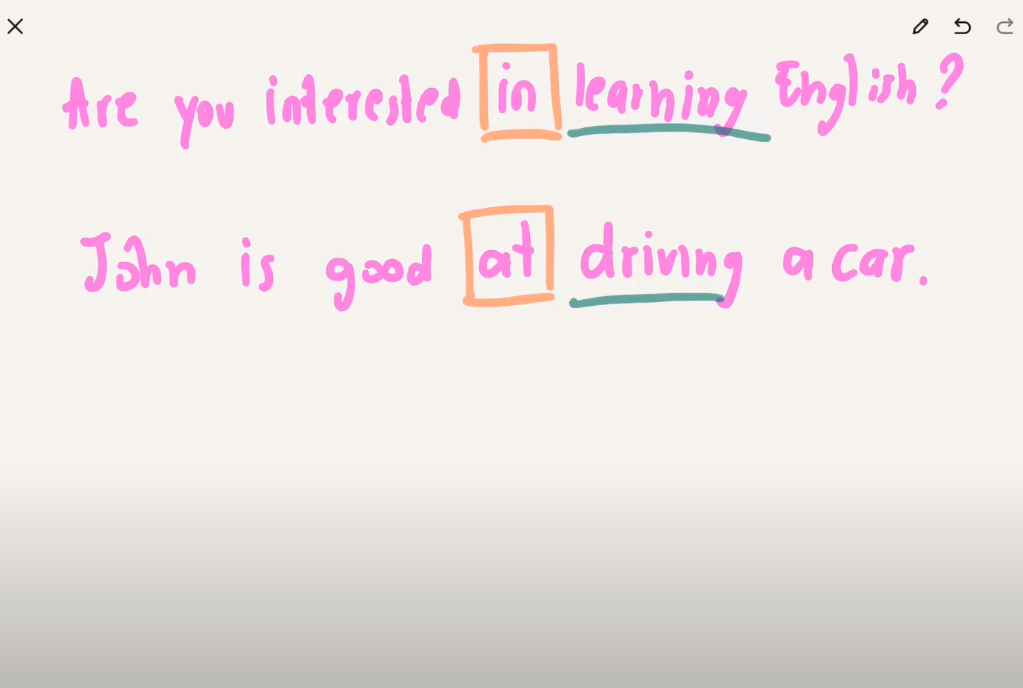 Are you interested in learning English?
John is good at driving a car.